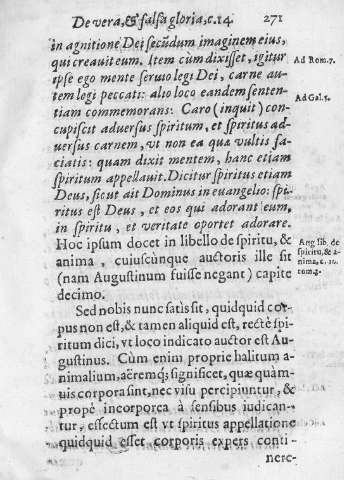 De vera, & falsa gloria, c. 14. 271
in agnitione Dei secũdum imaginem eius,
qui creauit eum. Item cùm dixisset, igitur
ipse ego mente seruio legi Dei, carne au-
tem legi peccati: alio loco eandem senten-
tiam commemorans: Caro (inquit) con-
cupiscit aduersus spiritum, et spiritus ad-
uersus carnem, vt non ea quæ vultis fa-
ciatis: quam dixit mentem, hanc etiam
spiritum appellauit. Dicitur spiritus etiam
Deus, sicut ait Dominus in euangelio: spi-
ritus est Deus, et eos qui adorant eum,
in spiritu, et veritate oportet adorare.
Hoc ipsum docet in libello de spiritu, &
anima, cuiuscùnque auctoris ille sit
(nam Augustinum fuisse negant) capite
decimo.
Sed nobis nunc satis sit, quidquid cor-
pus non est, & tamen aliquid est, rectè spi-
ritum dici, vt loco indicato auctor est Au-
gustinus. Cùm enim propriè halitum a-
nimalium, aëremq; significet, quæ quàm-
uis corpora sint, nec visu percipiuntur, &
propè incorporea à sensibus iudican-
tur, effectum est vt spiritus appellatione
quidquid esset corporis expers conti-
nere-
Ad Rom. 7.
Ad Gal. 5.
Aug lib. de
spiritu, & a-
nima, c. 10.
tom. 3.